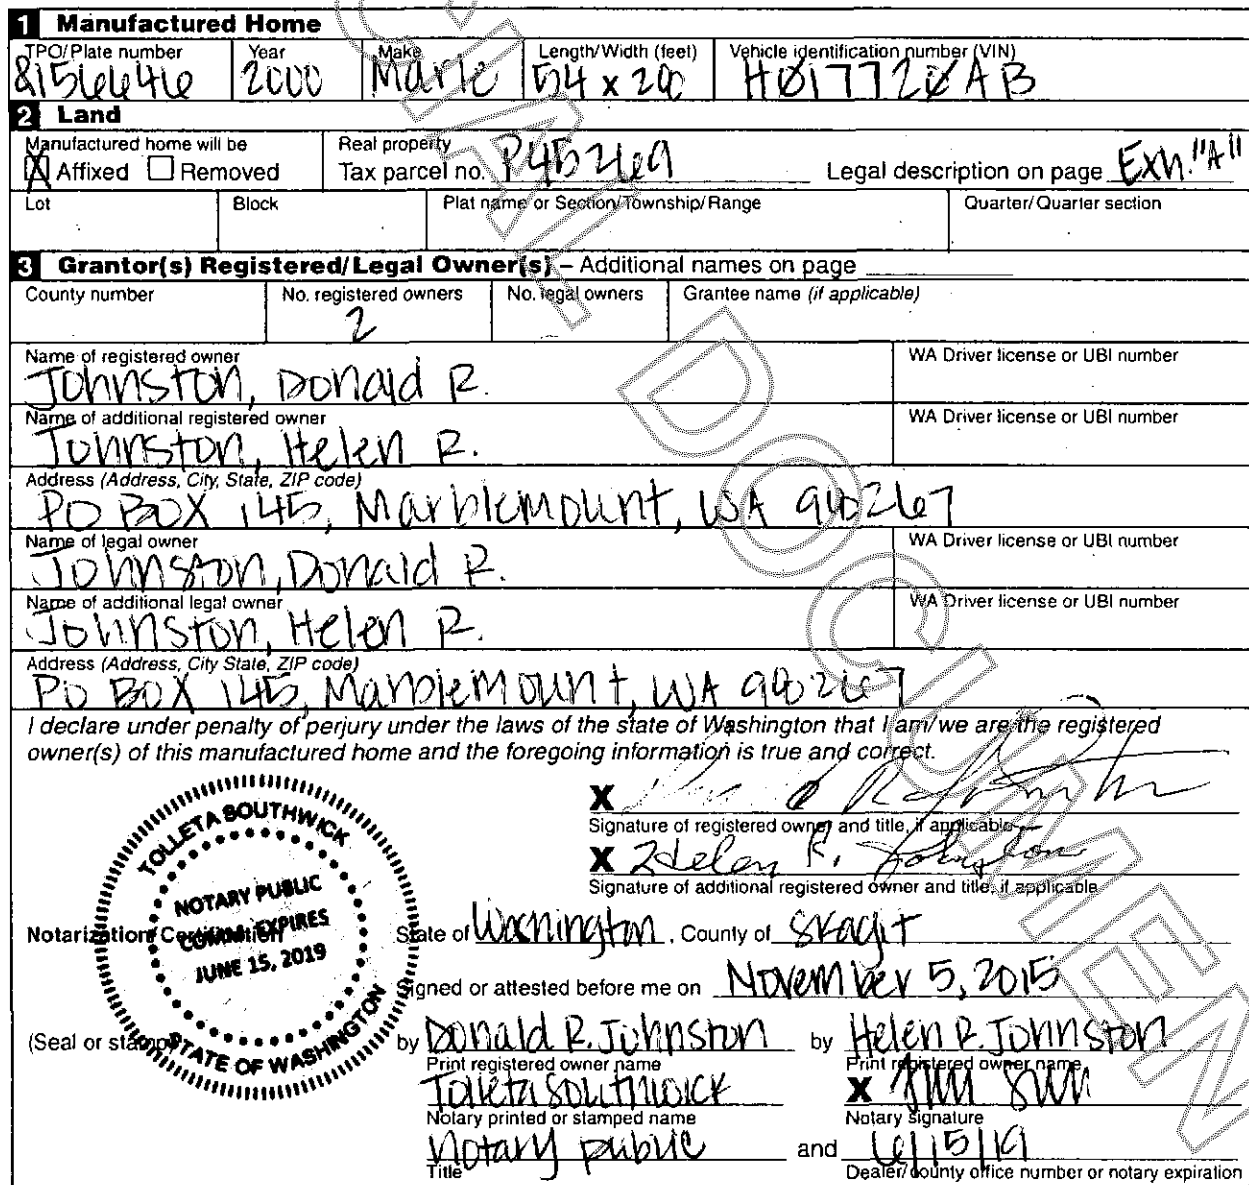 1 Manufactured Home
TPO/Plate number Year Make Length/Width (feet) Vehicle identification number (VIN)
8156646 2000 Marle 54 x 26 HØ17720AB
2 Land
Manufactured home will be Real property
X Affixed Removed Tax parcel no. P45269 Legal description on page Exh. "A"
Lot Block Plat name or Section/Township/Range Quarter/Quarter section
3 Grantor(s) Registered/Legal Owner(s) – Additional names on page
County number No. registered owners No. legal owners Grantee name (if applicable)
2
Name of registered owner WA Driver license or UBI number
Johnston, Donald R.
Name of additional registered owner WA Driver license or UBI number
Johnston, Helen R.
Address (Address, City, State, ZIP code)
PO BOX 145, Marblemount, WA 98267
Name of legal owner WA Driver license or UBI number
Johnston, Donald R.
Name of additional legal owner WA Driver license or UBI number
Johnston, Helen R.
Address (Address, City State, ZIP code)
PO BOX 145, Marblemount, WA 98267
I declare under penalty of perjury under the laws of the state of Washington that I am/we are the registered
owner(s) of this manufactured home and the foregoing information is true and correct.
X
Signature of registered owner and title, if applicable
X Helen R. Johnston
Signature of additional registered owner and title, if applicable
TOLLETA SOUTHWICK
NOTARY PUBLIC
COMM. EXPIRES
JUNE 15, 2019
STATE OF WASHINGTON
Notarization/Certification State of Washington, County of Skagit
Signed or attested before me on November 5, 2015
(Seal or stamp) by Donald R. Johnston by Helen R. Johnston
Print registered owner name Print registered owner name
Tolleta Southwick X
Notary printed or stamped name Notary signature
Notary public and 6/15/19
Title Dealer/county office number or notary expiration
DOCUMEN